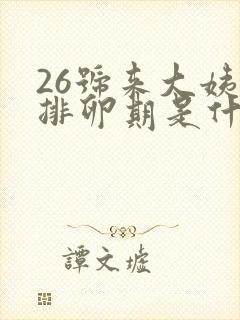 26號来大姨
排卵期是什
譚文墟